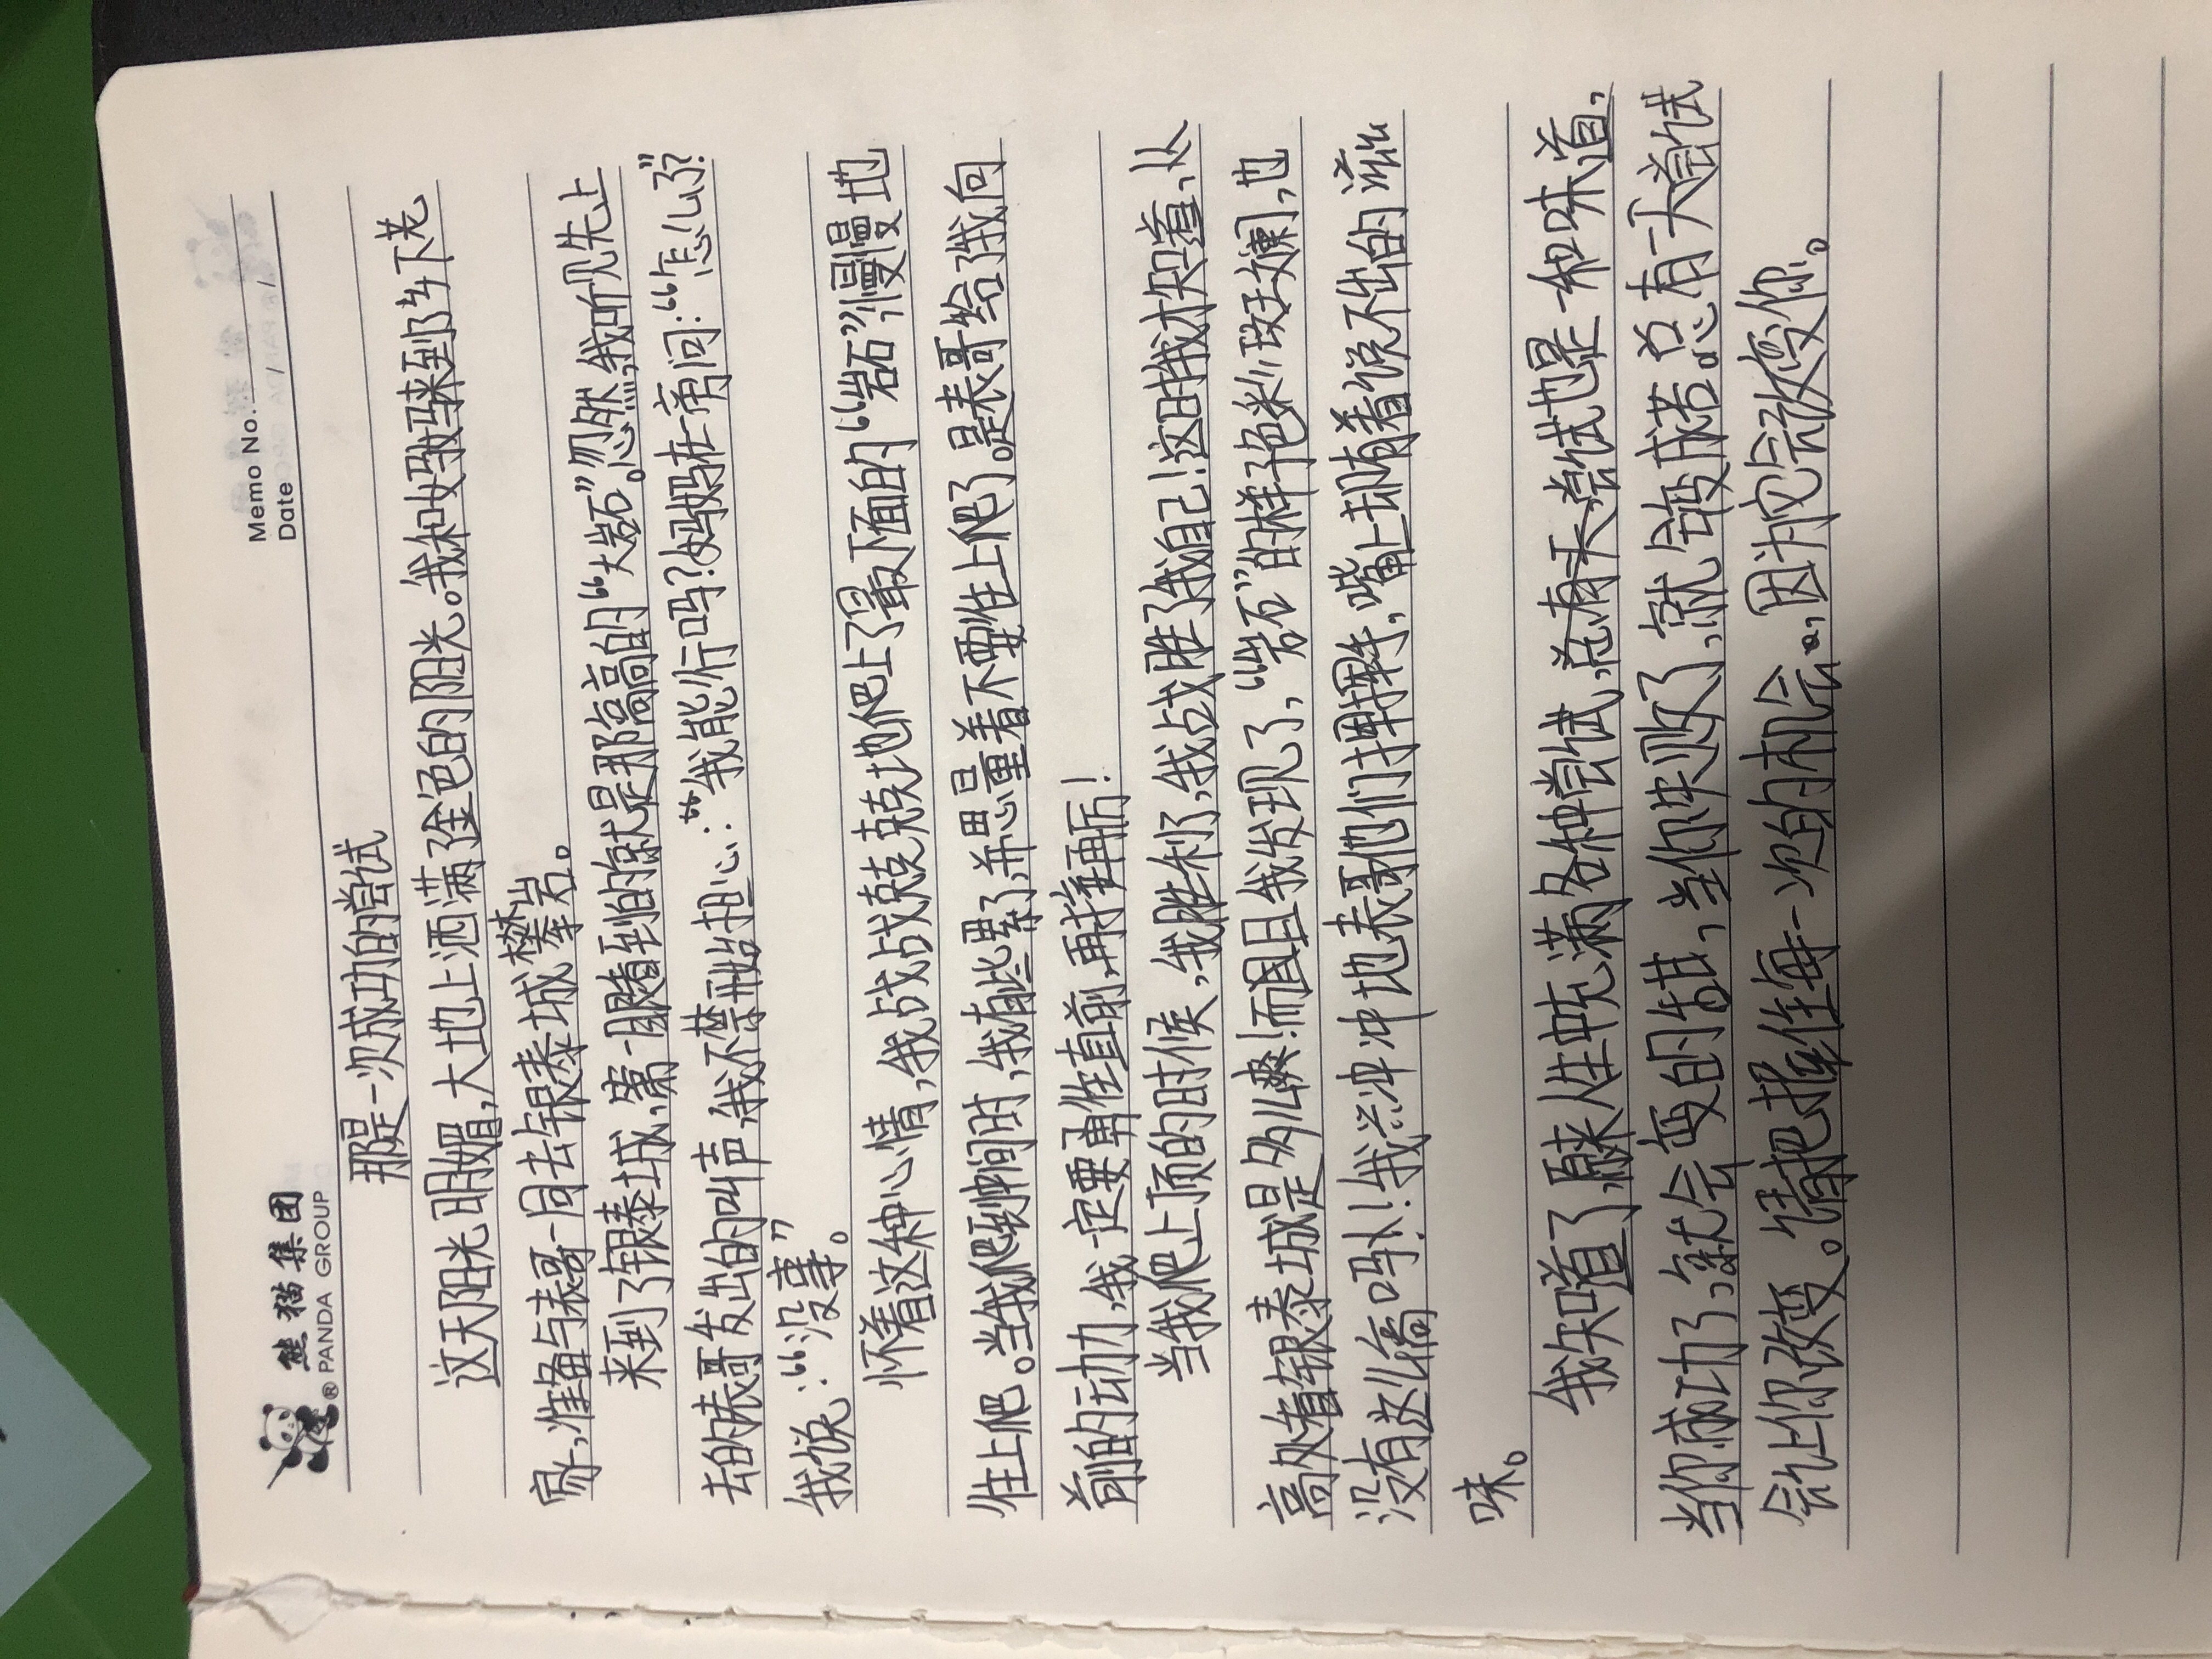 熊猫集团
® PANDA GROUP
Memo No.
Date / /
那是一次成功的尝试
这天阳光明媚,大地上洒满了金色的阳光。我和妈妈来到乡下老
家,准备与表哥一同去银泰城攀岩。
来到了银泰城,第一眼看到的就是那高高的“大岩石”。忽然,我听见先上
去的表哥发出的叫声,我不禁开始担心:“我能行吗?”妈妈在旁问:“怎么了?”
我说:“没事”。
怀着这种心情,我战战兢兢地爬上了最下面的“岩石”,慢慢地
往上爬。当我爬到中间时,我有些累了,并思量着不要往上爬了。是表哥给了我向
前的动力,我一定要勇往直前,再接再厉!
当我爬上顶的时候,我胜利了,我战胜了我自己!这时我才知道,从
高处看银泰城是多么爽!而且我发现了,“岩石”的样子色彩斑斓,也
没有这么高吗!我兴冲冲地表哥他们挥挥手,嘴上却有着说不出的滋
味。
我知道了,原来人生中充满各种尝试,总有一天尝试也是一种味道,
当你成功了,就会变的甜,当你失败了,就会变成苦。总有一天尝试
会让你改变。请把握住每一次的机会,因为它会改变你。